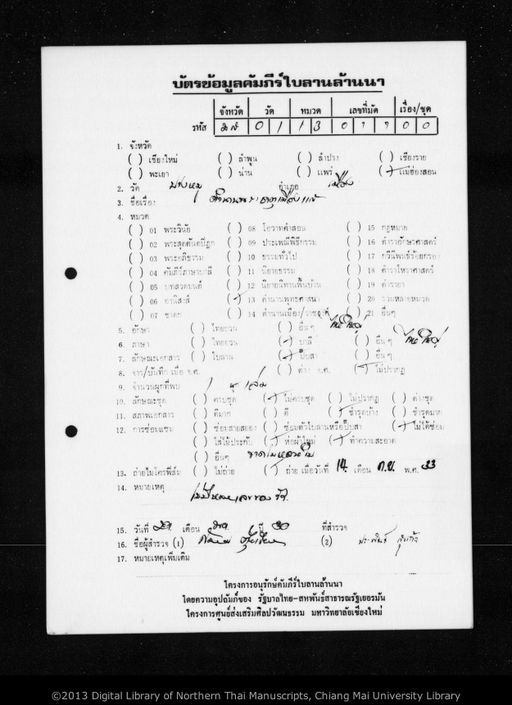 บัตรข้อมูลคัมภีร์ใบลานล้านนา
จังหวัด วัด หมวด เลขที่มัด เรื่อง/ชุด
รหัส มส 0 1 1 3 0 0 0
1. จังหวัด
( ) เชียงใหม่ ( ) ลำพูน ( ) ลำปาง ( ) เชียงราย
( ) พะเยา ( ) น่าน ( ) แพร่ (✓) แม่ฮ่องสอน
2. วัด อำเภอ เมือง
3. ชื่อเรื่อง
4. หมวด
( ) 01 พระวินัย ( ) 08 โอวาทคำสอน ( ) 15 กฎหมาย
( ) 02 พระสุตตันตปิฎก ( ) 09 ประเพณีพิธีกรรม ( ) 16 ตำราอักษรศาสตร์
( ) 03 พระอภิธรรม ( ) 10 ธรรมทั่วไป ( ) 17 กวีนิพนธ์ร้อยกรอง
( ) 04 คัมภีร์ภาษาบาลี ( ) 11 นิยายธรรม ( ) 18 ตำราโหราศาสตร์
( ) 05 บทสวดมนต์ ( ) 12 นิยายนิทานพื้นบ้าน ( ) 19 ตำรายา
( ) 06 อานิสงส์ (✓) 13 ตำนานพุทธศาสนา ( ) 20 รวมหลายหมวด
( ) 07 ชาดก ( ) 14 ตำนานเมือง/ราชวงศ์ ( ) 21 อื่นๆ
5. อักษร ( ) ไทยยวน ( ) อื่นๆ ไทใหญ่
6. ภาษา ( ) ไทยยวน (✓) บาลี ( ) อื่นๆ ไทใหญ่
7. ลักษณะเอกสาร ( ) ใบลาน (✓) ปั๊บสา ( ) อื่นๆ
8. จาร/บันทึก เมื่อ จ.ศ. ( ) ค่าง จ.ศ. (✓) ไม่ปรากฏ
9. จำนวนผูกที่พบ 1
10. ลักษณะชุด ( ) ครบชุด (✓) ไม่ครบชุด ( ) ไม่ปรากฏ ( ) ต่างชุด
11. สภาพเอกสาร ( ) ดีมาก ( ) ดี (✓) ชำรุดบ้าง ( ) ชำรุดมาก
12. การซ่อมแซม ( ) ซ่อมสายสยอง ( ) ซ่อมตัวใบลานหรือปั๊บสา (✓) ไม่ได้ซ่อม
( ) ใส่ไม้ประกับ (✓) ห่อผ้าใหม่ (✓) ทำความสะอาด
( ) อื่นๆ
13. ถ่ายไมโครฟิล์ม ( ) ไม่ถ่าย (✓) ถ่าย เมื่อวันที่ 14 เดือน ก.ย. พ.ศ. 33
14. หมายเหตุ
15. วันที่ เดือน ปี 30 ที่สำรวจ
16. ชื่อผู้สำรวจ (1) (2)
17. หมายเหตุเพิ่มเติม
โครงการอนุรักษ์คัมภีร์ใบลานล้านนา
โดยความอุปถัมภ์ของ รัฐบาลไทย-สหพันธ์สาธารณรัฐเยอรมัน
โครงการศูนย์ส่งเสริมศิลปวัฒนธรรม มหาวิทยาลัยเชียงใหม่
©2013 Digital Library of Northern Thai Manuscripts, Chiang Mai University Library